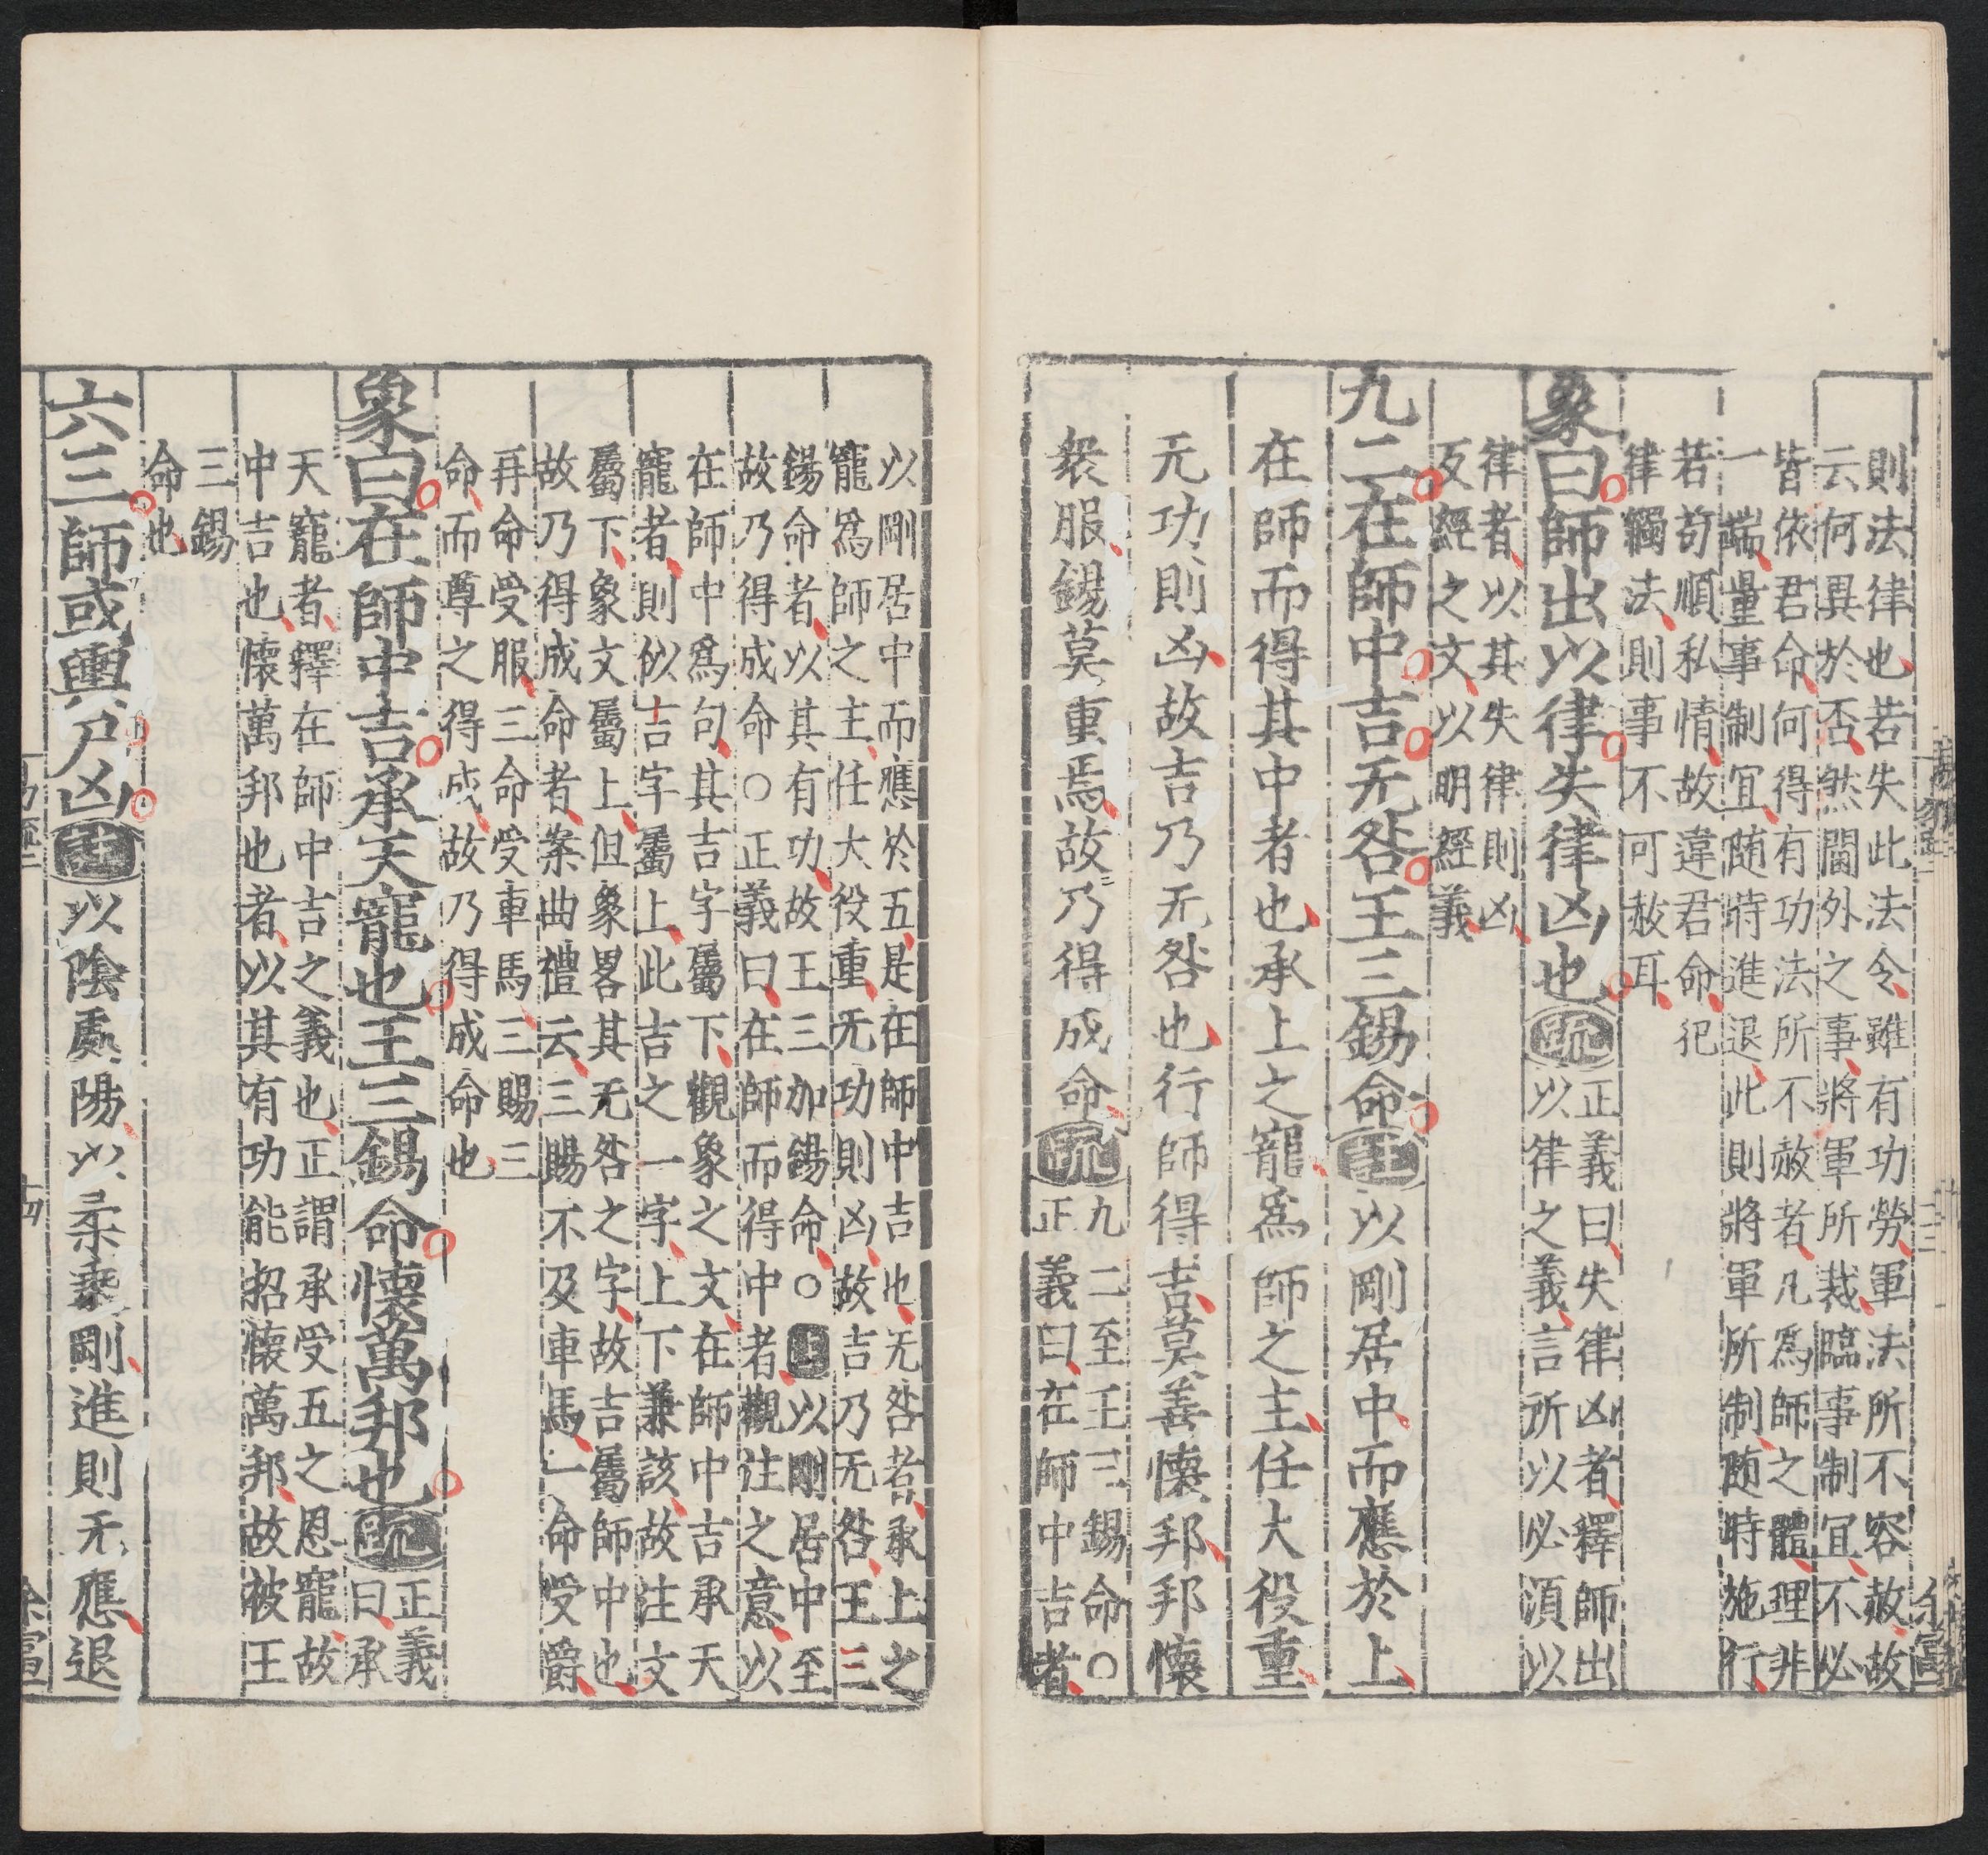 則法律也若失此法令雖有功勞軍法所不容赦故
云何異於否然閫外之事將軍所裁臨事制宜不必
皆依君命何得有功法所不赦者凡爲師之體理非
一端量事制宜随時進退此則將軍所制随時施行
若苟順私情故違君命犯
律觸法則事不可赦耳
象曰師出以律失律凶也疏
正義曰失律凶者釋師出
以律之義言所以必須以
律者以其失律則凶
反經之文以明經義
九二在師中吉无咎王三錫命注以剛居中而應於上
在師而得其中者也承上之寵爲師之主任大役重
无功則凶故吉乃无咎也行師得吉莫善懷邦邦懷
衆服錫莫重焉故乃得成命疏
九二至王三錫命○
正義曰在師中吉者
以剛居中而應於五是在師中吉也无咎者承上之
寵爲師之主任大役重无功則凶故吉乃无咎王三
錫命者以其有功故王三加錫命○注以剛居中至
故乃得成命○正義曰在師而得中者觀注之意以
在師中爲句其吉字屬下觀象之文在師中吉承天
寵者則似吉字屬上此吉之一字上下兼該故注文
屬下象文屬上但象畧其无咎之字故吉屬師中也
故乃得成命者案曲禮云三賜不及車馬一命受爵
再命受服三命受車馬三賜三
命而尊之得成故乃得成命也
象曰在師中吉承天寵也王三錫命懷萬邦也疏
正義
曰承
天寵者釋在師中吉之義也正謂承受五之恩寵故
中吉也懷萬邦也者以其有功能招懷萬邦故被王
三錫
命也
六三師或輿尸凶注以陰處陽以柔乘剛進則无應退